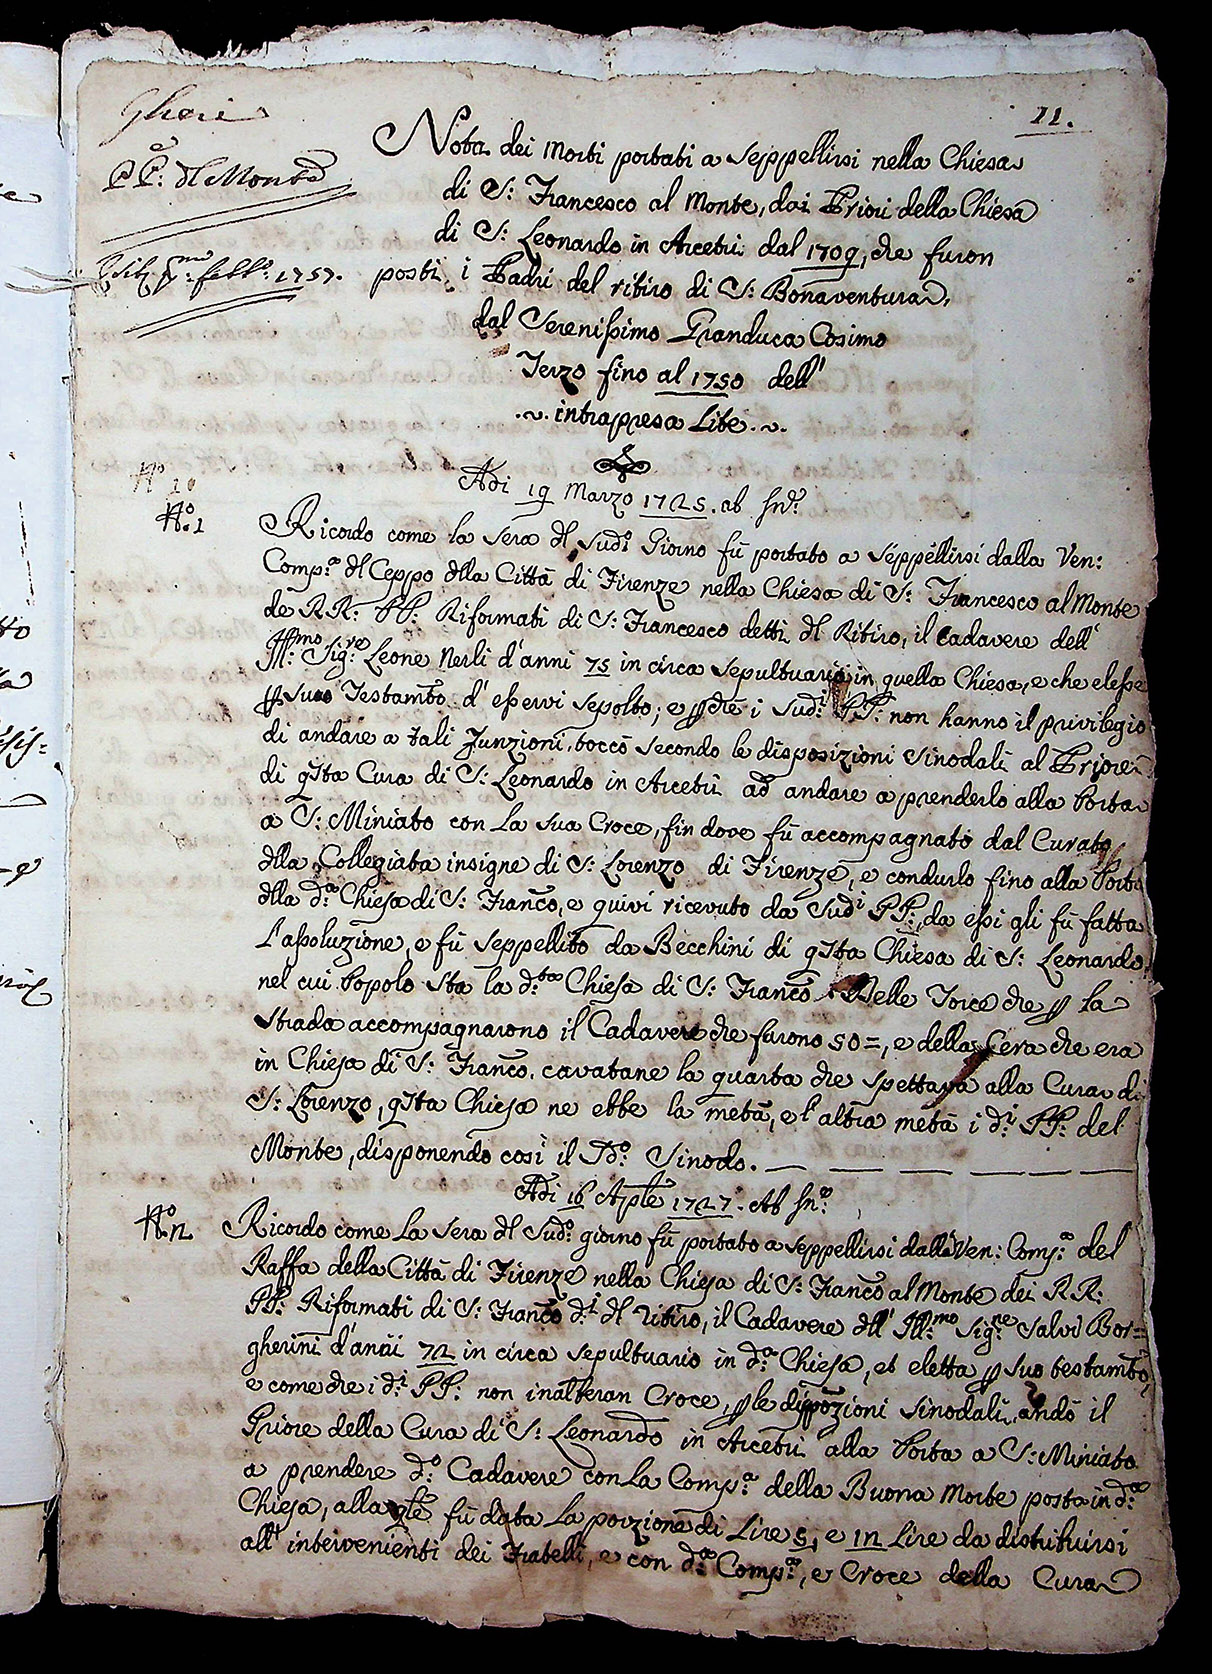 Gheri
11.
PP: del Monte
Nota dei Morti portati a Seppellirsi nella Chiesa
di S: Francesco al Monte, dai Priori della Chiesa
di S: Leonardo in Arcetri dal 1709, che furon
febb.o 1757.
posti i Padri del ritiro di S: Bonaventura,
dal Serenissimo Granduca Cosimo
Terzo fino al 1750 dell'
intrapresa Lite.
Adi 19 Marzo 1725. ab Ind.e
N.o 1
N.o 1 Ricordo come la Sera dl Sud.o Giorno fù portato a Seppellirsi dalla Ven:
Comp.a dl Ceppo dlla Città di Firenze nella Chiesa di S: Francesco al Monte
de RR: PP: Riformati di S: Francesco detti dl Ritiro, il Cadavere dell'
Ill:mo Sig:re Leone Nerli d'anni 75 in circa sepultuario in quella Chiesa, e che elesse
p suo Testam.to d'esservi sepolto; e p che i Sud.i PP: non hanno il privilegio
di andare a tali Funzioni, toccò secondo le disposizioni Sinodali al Priore
di qsta Cura di S: Leonardo in Arcetri ad andare a prenderlo alla Porta
a S: Miniato con la sua Croce, fin dove fù accompagnato dal Curato
dlla Collegiata insigne di S: Lorenzo di Firenze, e condurlo fino alla Porta
dlla d.a Chiesa di S: Franc.o, e quivi ricevuto da Sud.i PP: da essi gli fù fatta
l'assoluzione, e fù Seppellito da Becchini di qsta Chiesa di S: Leonardo,
nel cui Popolo sta la d.ta Chiesa di S: Franc.o Delle Torce che p la
Strada accompagnarono il Cadavere che furono 50=, e della Cera che era
in Chiesa di S: Franc.o, cavatane la quarta che spettava alla Cura di
S: Lorenzo, qsta Chiesa ne ebbe la metà, e l'altra metà i d.i PP: del
Monte, disponendo così il Sinodo.
Adi 16 Aprle 1727. Ab In.e
N.o 2. Ricordo come la Sera dl Sud.o giorno fù portato a Seppellirsi dalla Ven: Comp.a del
Raffa della Città di Firenze nella Chiesa di S: Franc.o al Monte dei RR:
PP: Riformati di S: Franc.o d.i dl Ritiro, il Cadavere dll' Ill:mo Sig:re Salvi Bor=
gherini d'anni 72 in circa sepultuario in d.a Chiesa, et eletta p suo testamto,
e come che i d.i PP: non inalteran Croce, p le dispozioni Sinodali, andò il
Priore della Cura di S: Leonardo in Arcetri alla Porta a S: Miniato
a prendere d.o Cadavere con la Comp.a della Buona Morte posta in d.a
Chiesa, alla qle fù data la porzione di Lire 5, e 12 Lire da distribuirsi
all' intervenienti dei Fratelli, e con d.a Comp.a, e Croce della Cura